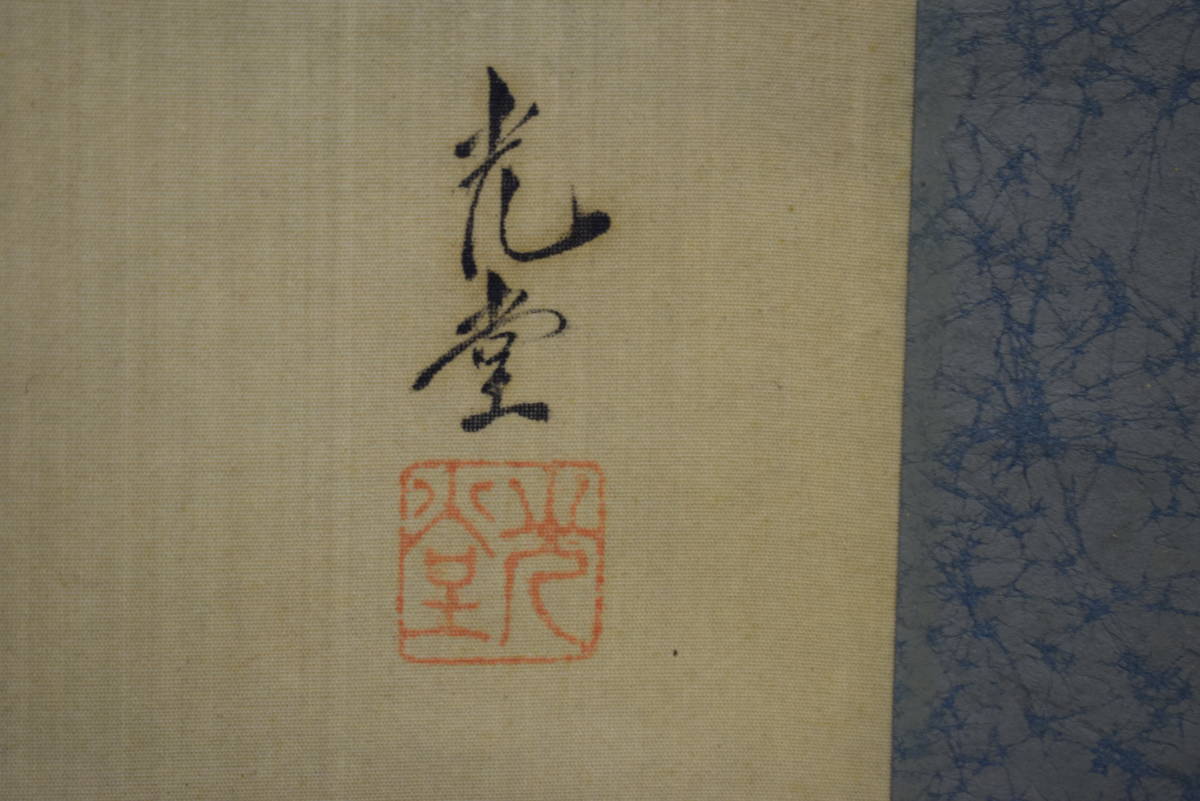 光堂
光堂